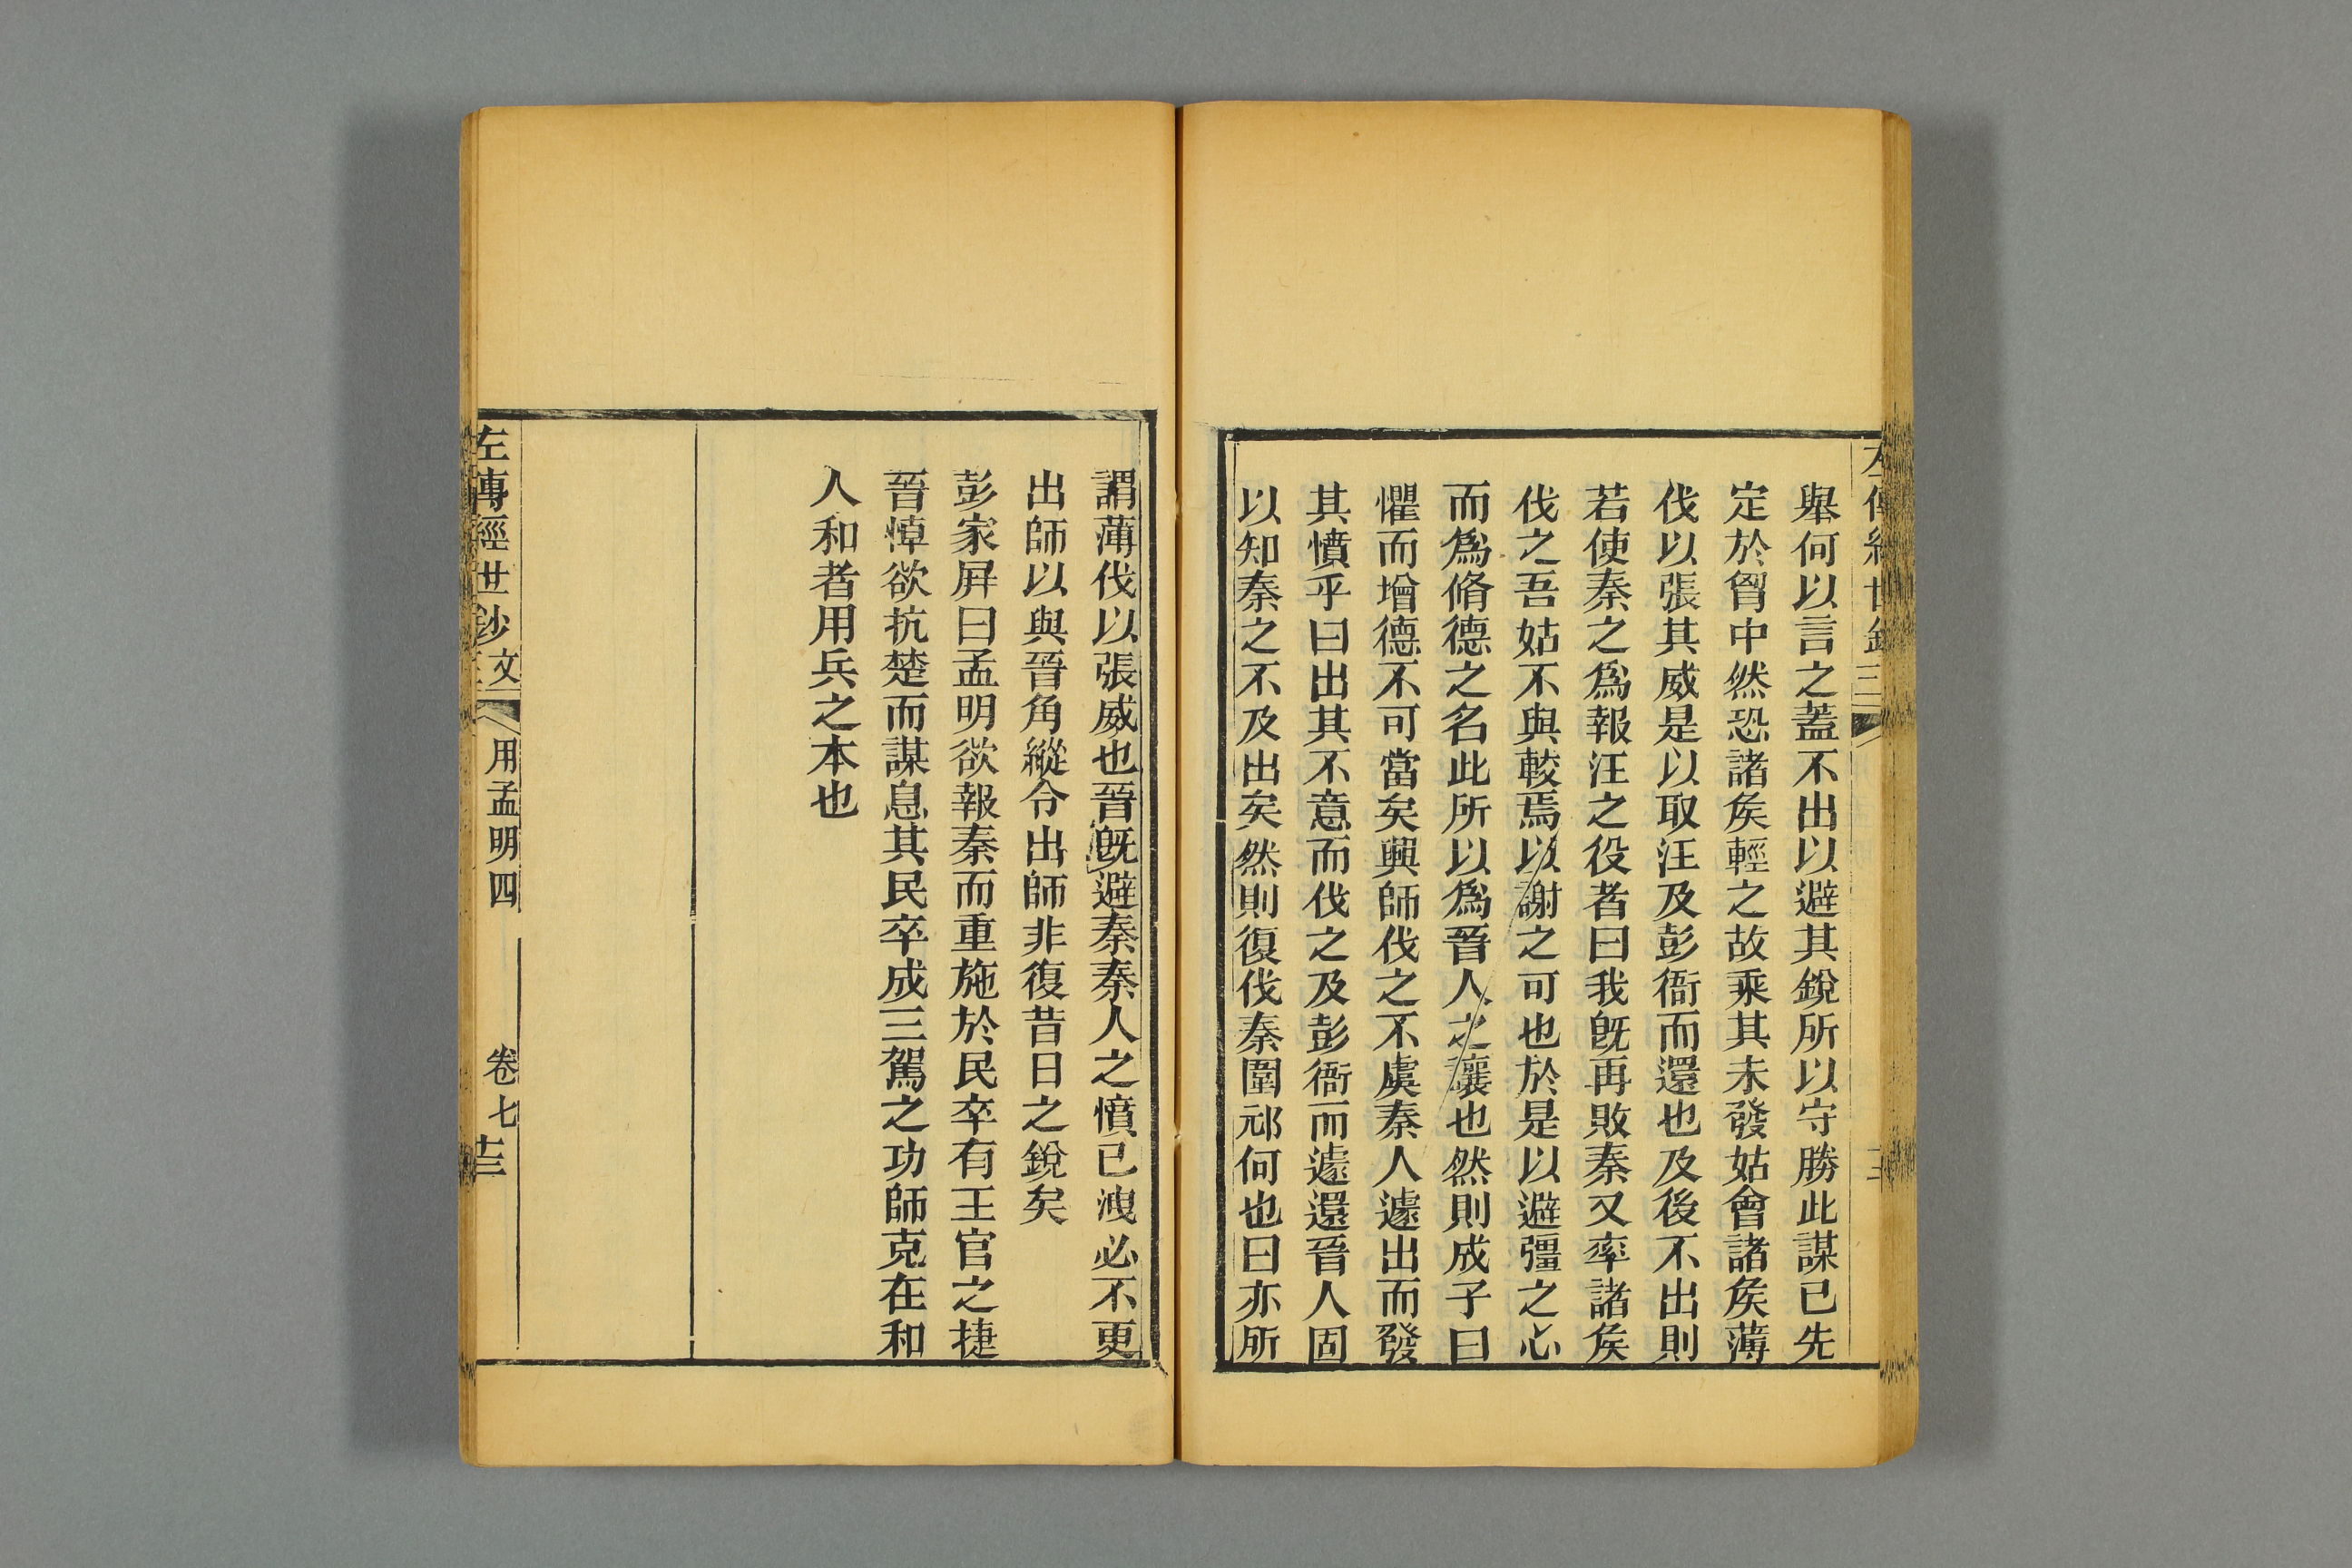 舉何以言之蓋不出以避其銳所以守勝此謀已先
定於胷中然恐諸矦輕之故乘其未發姑會諸矦薄
伐以張其威是以取汪及彭衙而還也及後不出則
若使秦之爲報汪之役者曰我旣再敗秦又率諸矦
伐之吾姑不與較焉以謝之可也於是以避彊之心
而爲脩德之名此所以爲晉人之讓也然則成子曰
懼而增德不可當矣興師伐之不虞秦人遽出而發
其憤乎曰出其不意而伐之及彭衙而遽還晉人固
以知秦之不及出矣然則復伐秦圍邧何也曰亦所
謂薄伐以張威也晉旣避秦秦人之憤已洩必不更
出師以與晉角縱令出師非復昔日之銳矣
彭家屏曰孟明欲報秦而重施於民卒有王官之捷
晉悼欲抗楚而謀息其民卒成三駕之功師克在和
人和者用兵之本也
左傳經世鈔 文 用孟明四 卷七 十三